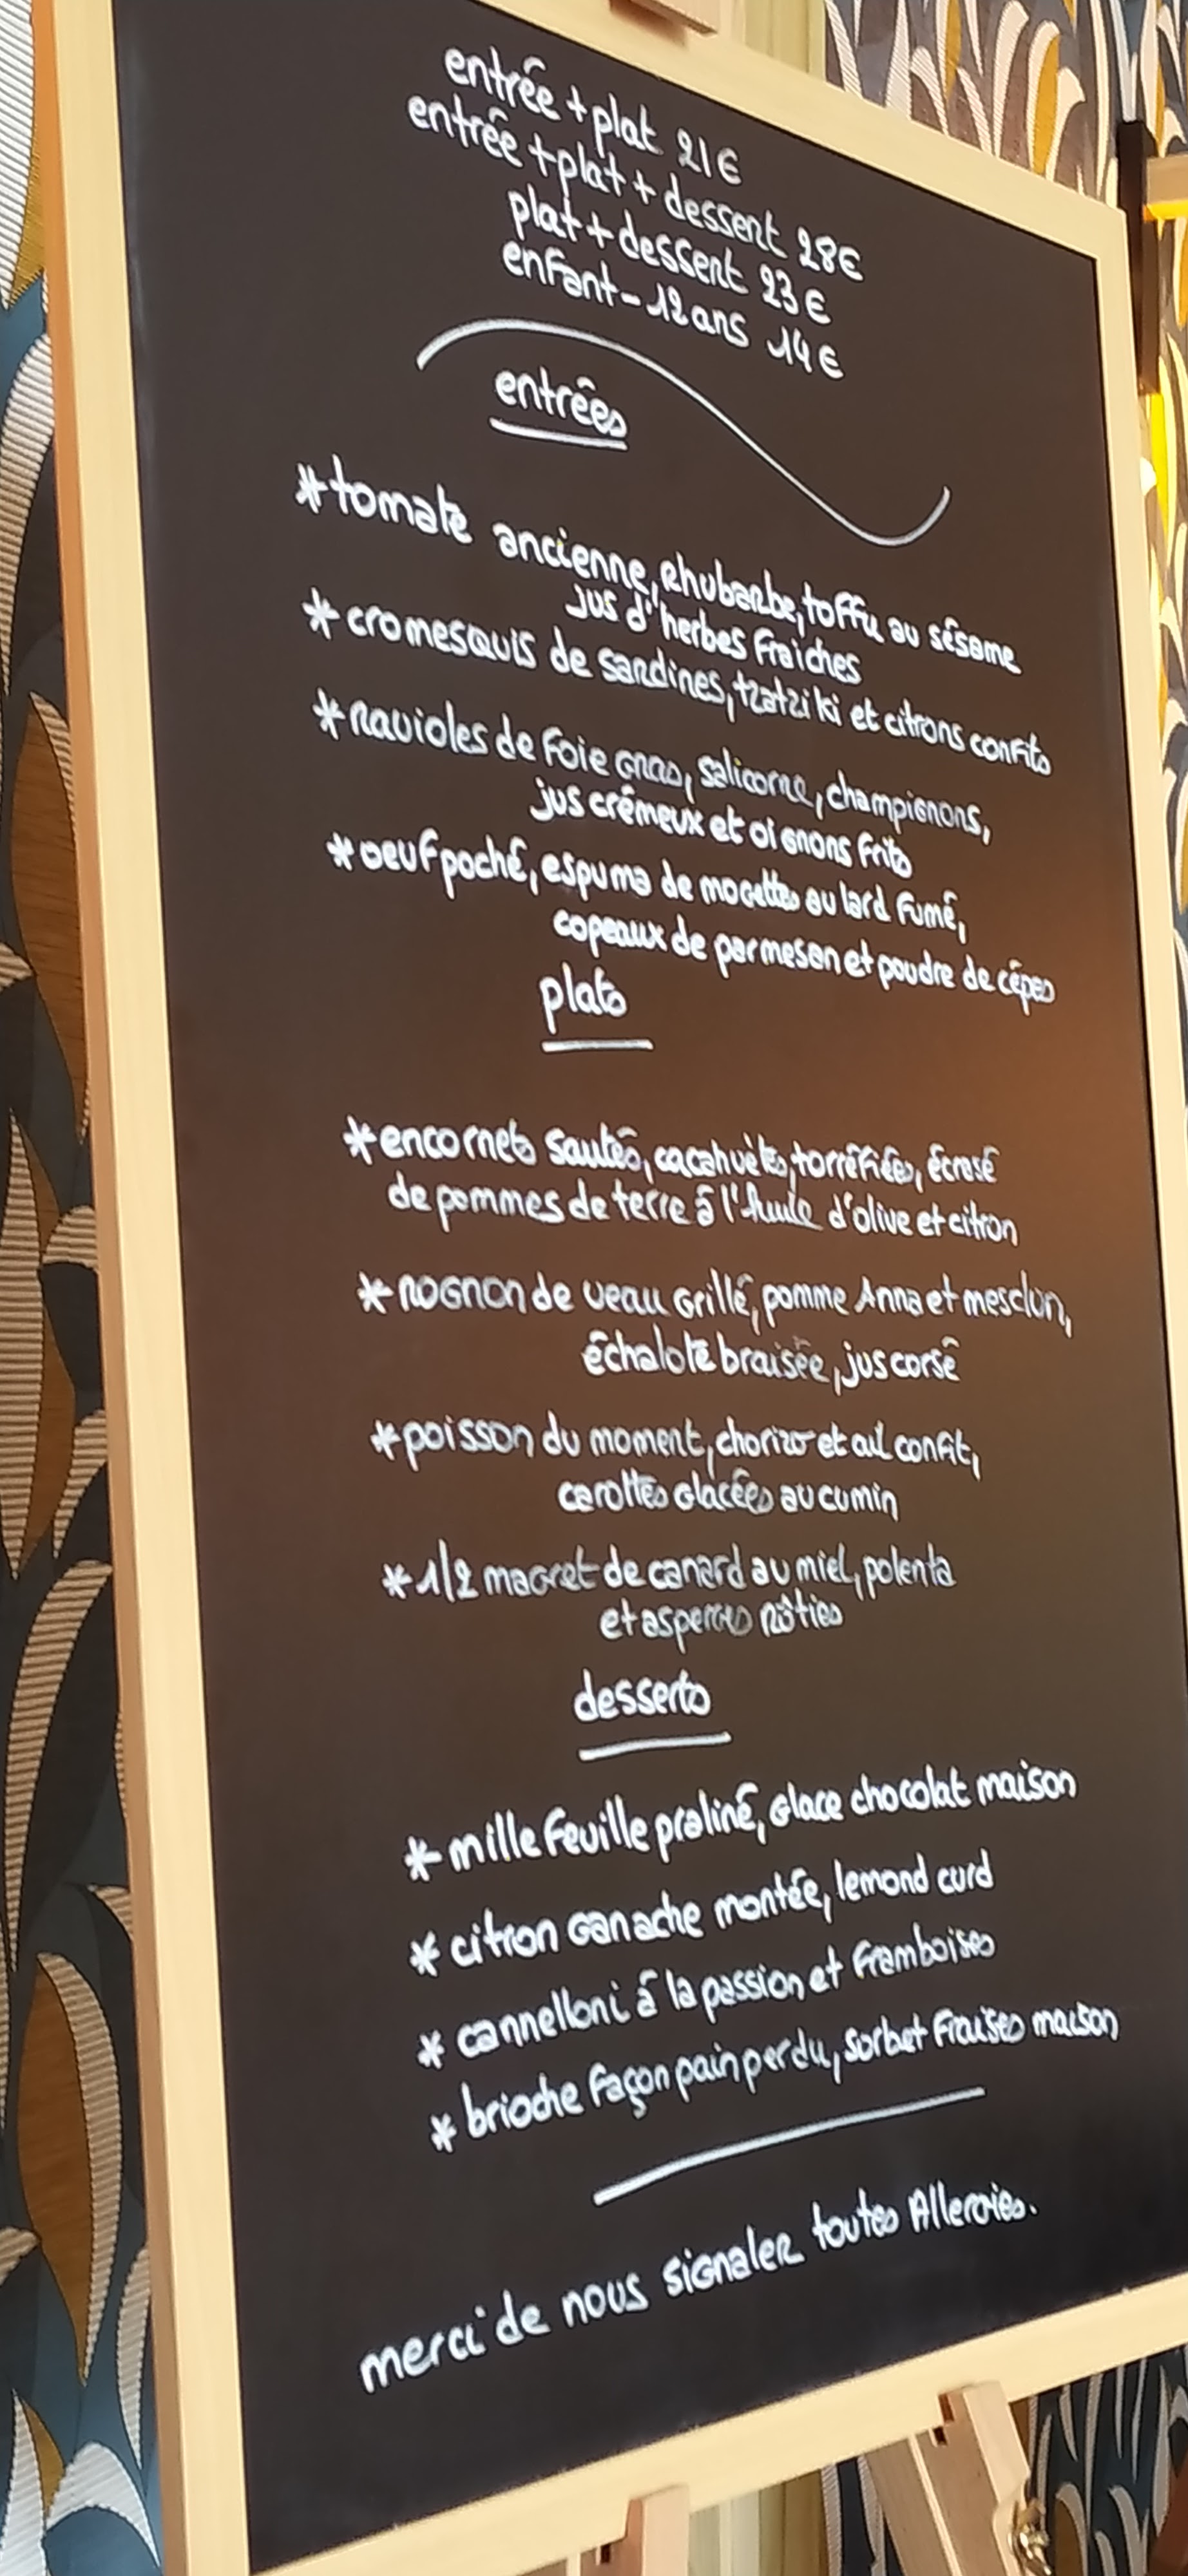 entrée + plat 21€
entrée + plat + dessert 28€
plat + dessert 23€
enfant - 12 ans 14€
entrées
*tomate ancienne, rhubarbe, toffu au sésame
jus d'herbes fraiches
*cromesquis de sardines, tzatziki et citrons confits
*ravioles de foie gras, salicorne, champignons,
jus crémeux et oignons frits
*oeuf poché, espuma de mogettes au lard fumé,
copeaux de parmesan et poudre de cépes
plats
*encornets sautés, cacahuètes torréfiées, écrasé
de pommes de terre à l'huile d'olive et citron
*rognon de veau grillé, pomme Anna et mesclun,
échalote braisée, jus corsé
*poisson du moment, chorizo et ail confit,
carottes glacées au cumin
*1/2 magret de canard au miel, polenta
et asperges rôties
desserts
*mille feuille praliné, glace chocolat maison
*citron ganache montée, lemond curd
*cannelloni à la passion et framboises
*brioche façon pain perdu, sorbet fraises maison
merci de nous signaler toutes Allergies.